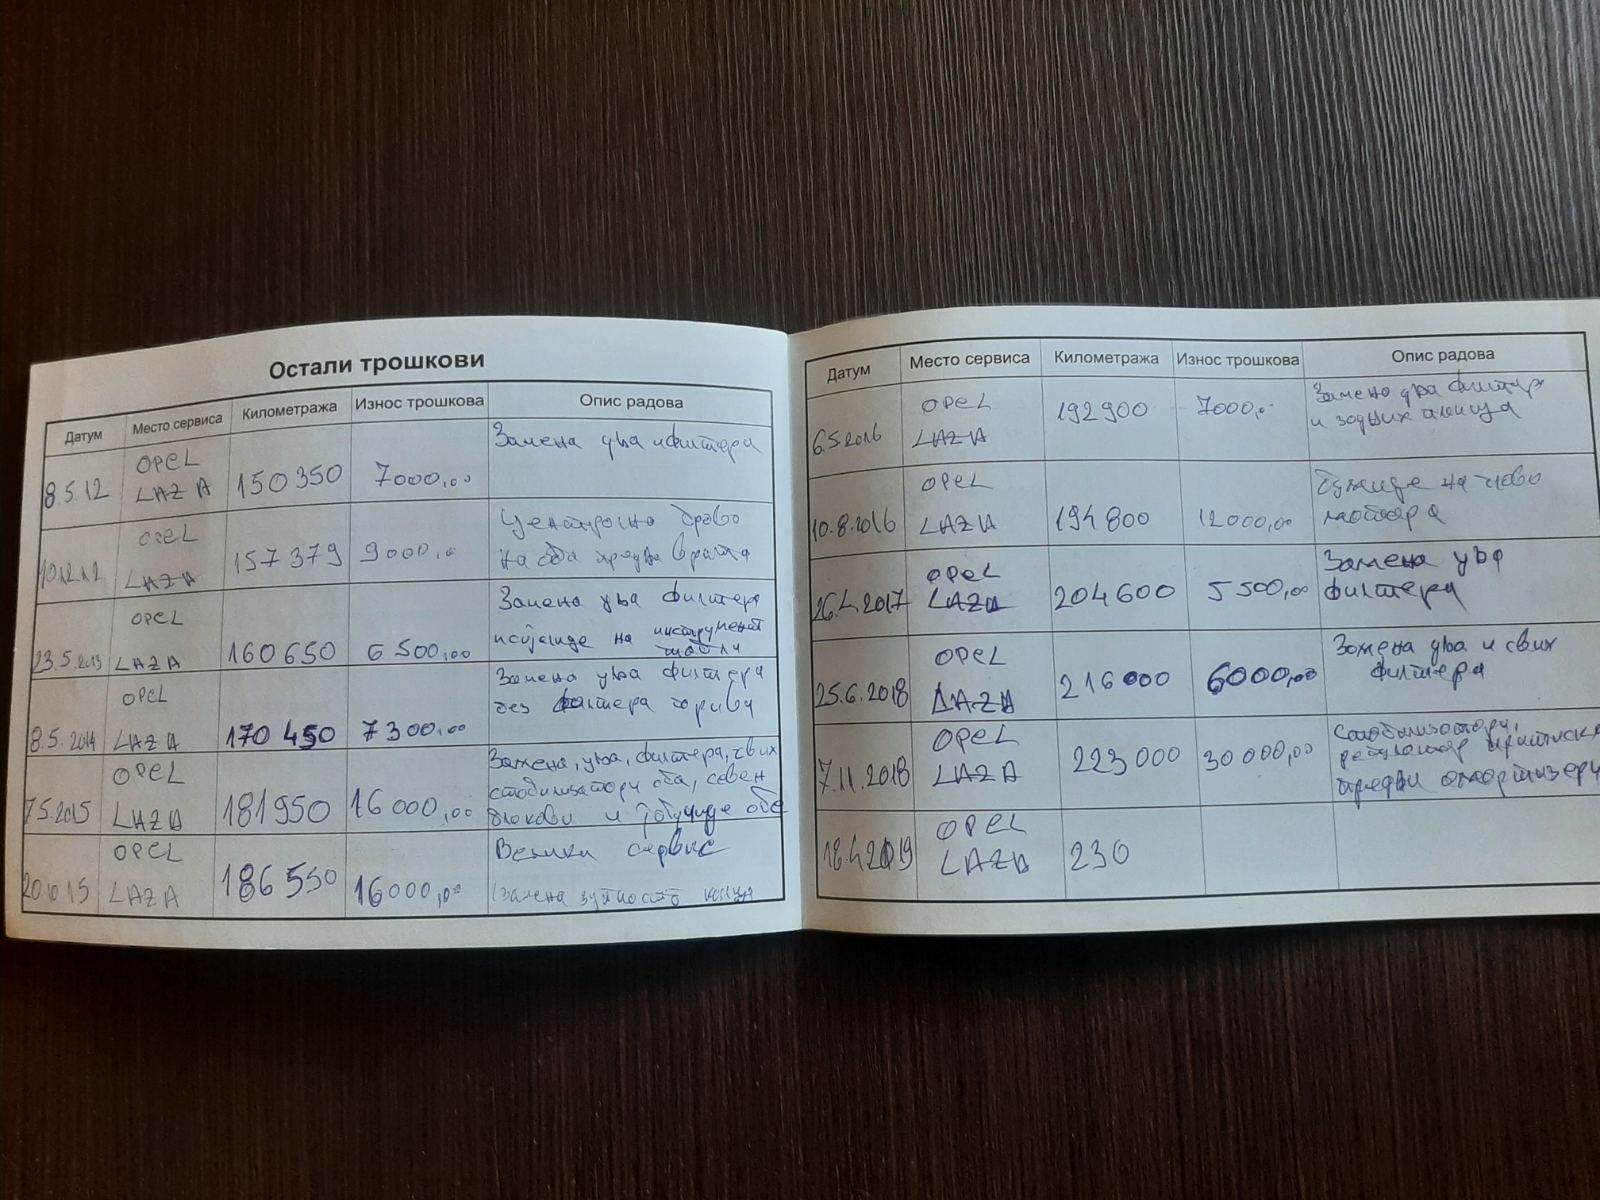 Остали трошкови
Датум Место сервиса Километража Износ трошкова Опис радова
8.5.12 OPEL LAZA 150350 7000,00 Замена уља и филтера
10.12.12 OPEL LAZA 157379 9000,00 Централна брава
на оба предња врата
23.5.2013 OPEL LAZA 160650 6500,00 Замена уља филтера
и сијалице на инструмент
табли
8.5.2014 OPEL LAZA 170450 7300,00 Замена уља филтера
без филтера горива
7.5.2015 OPEL LAZA 181950 16000,00 Замена, уља, филтера, свих
стабилизатори оба,
блокови и
20.6.15 OPEL LAZA 186550 16000,00 Велики сервис
(Замена зупчастог каиша
Датум Место сервиса Километража Износ трошкова Опис радова
6.5.2016 OPEL LAZA 192900 7000,- Замена уља филтера
и задњих
10.8.2016 OPEL LAZA 194800 12000,00 на
мотора
26.4.2017 OPEL LAZA 204600 5500,00 Замена уља
филтера
25.6.2018 OPEL LAZA 216000 6000,00 Замена уља и свих
филтера
7.11.2018 OPEL LAZA 223000 30000,00 Стабилизатори,
регулатор притиска
предњи амортизери
18.4.2019 OPEL LAZA 230